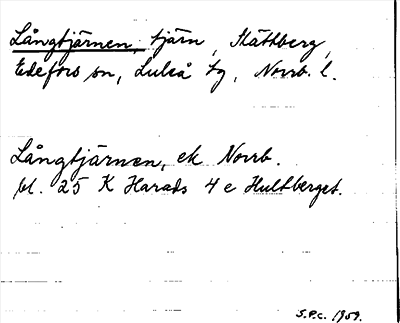 Långtjärnen, tjärn, Slättberg,
Edefors sn, Luleå tg, Norrb. l.
Långtjärnen, ek Norrb.
bl. 25 K Harads 4 e Hultberget.
S.P.c. 1959.